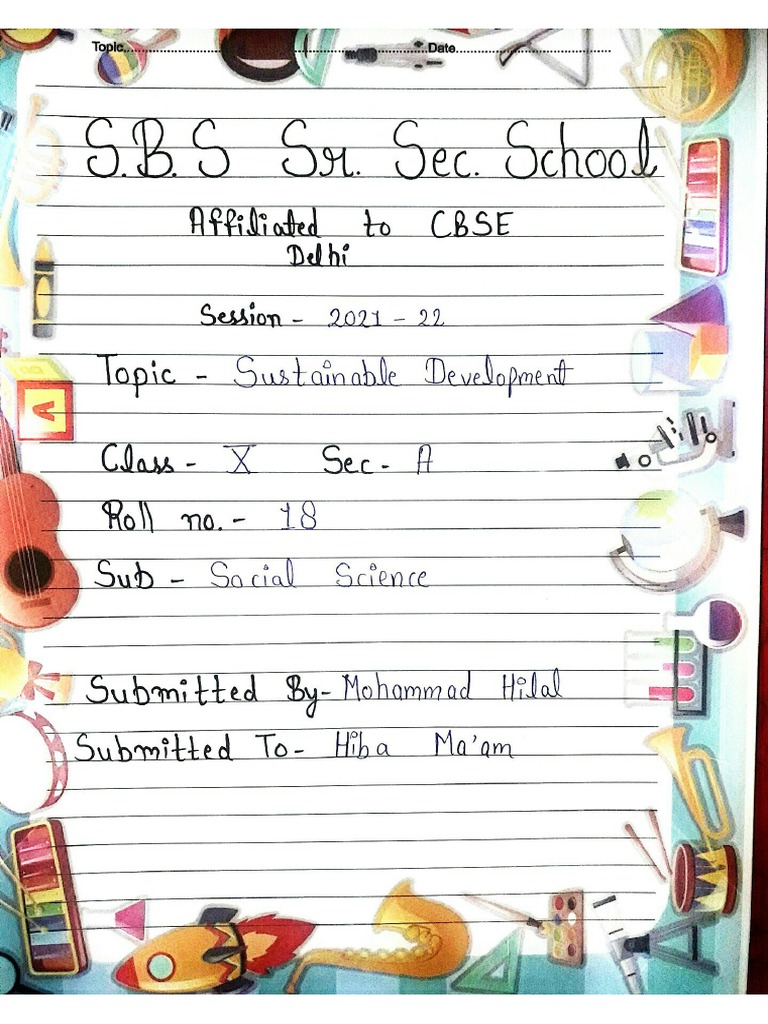 Topic............................................................Date........................................
S.B.S Sr. Sec. School
Affiliated to CBSE
Delhi
Session - 2021 - 22
Topic - Sustainable Development
Class - X Sec - A
Roll no. - 18
Sub - Social Science
Submitted By - Mohammad Hilal
Submitted To - Hiba Ma'am
A